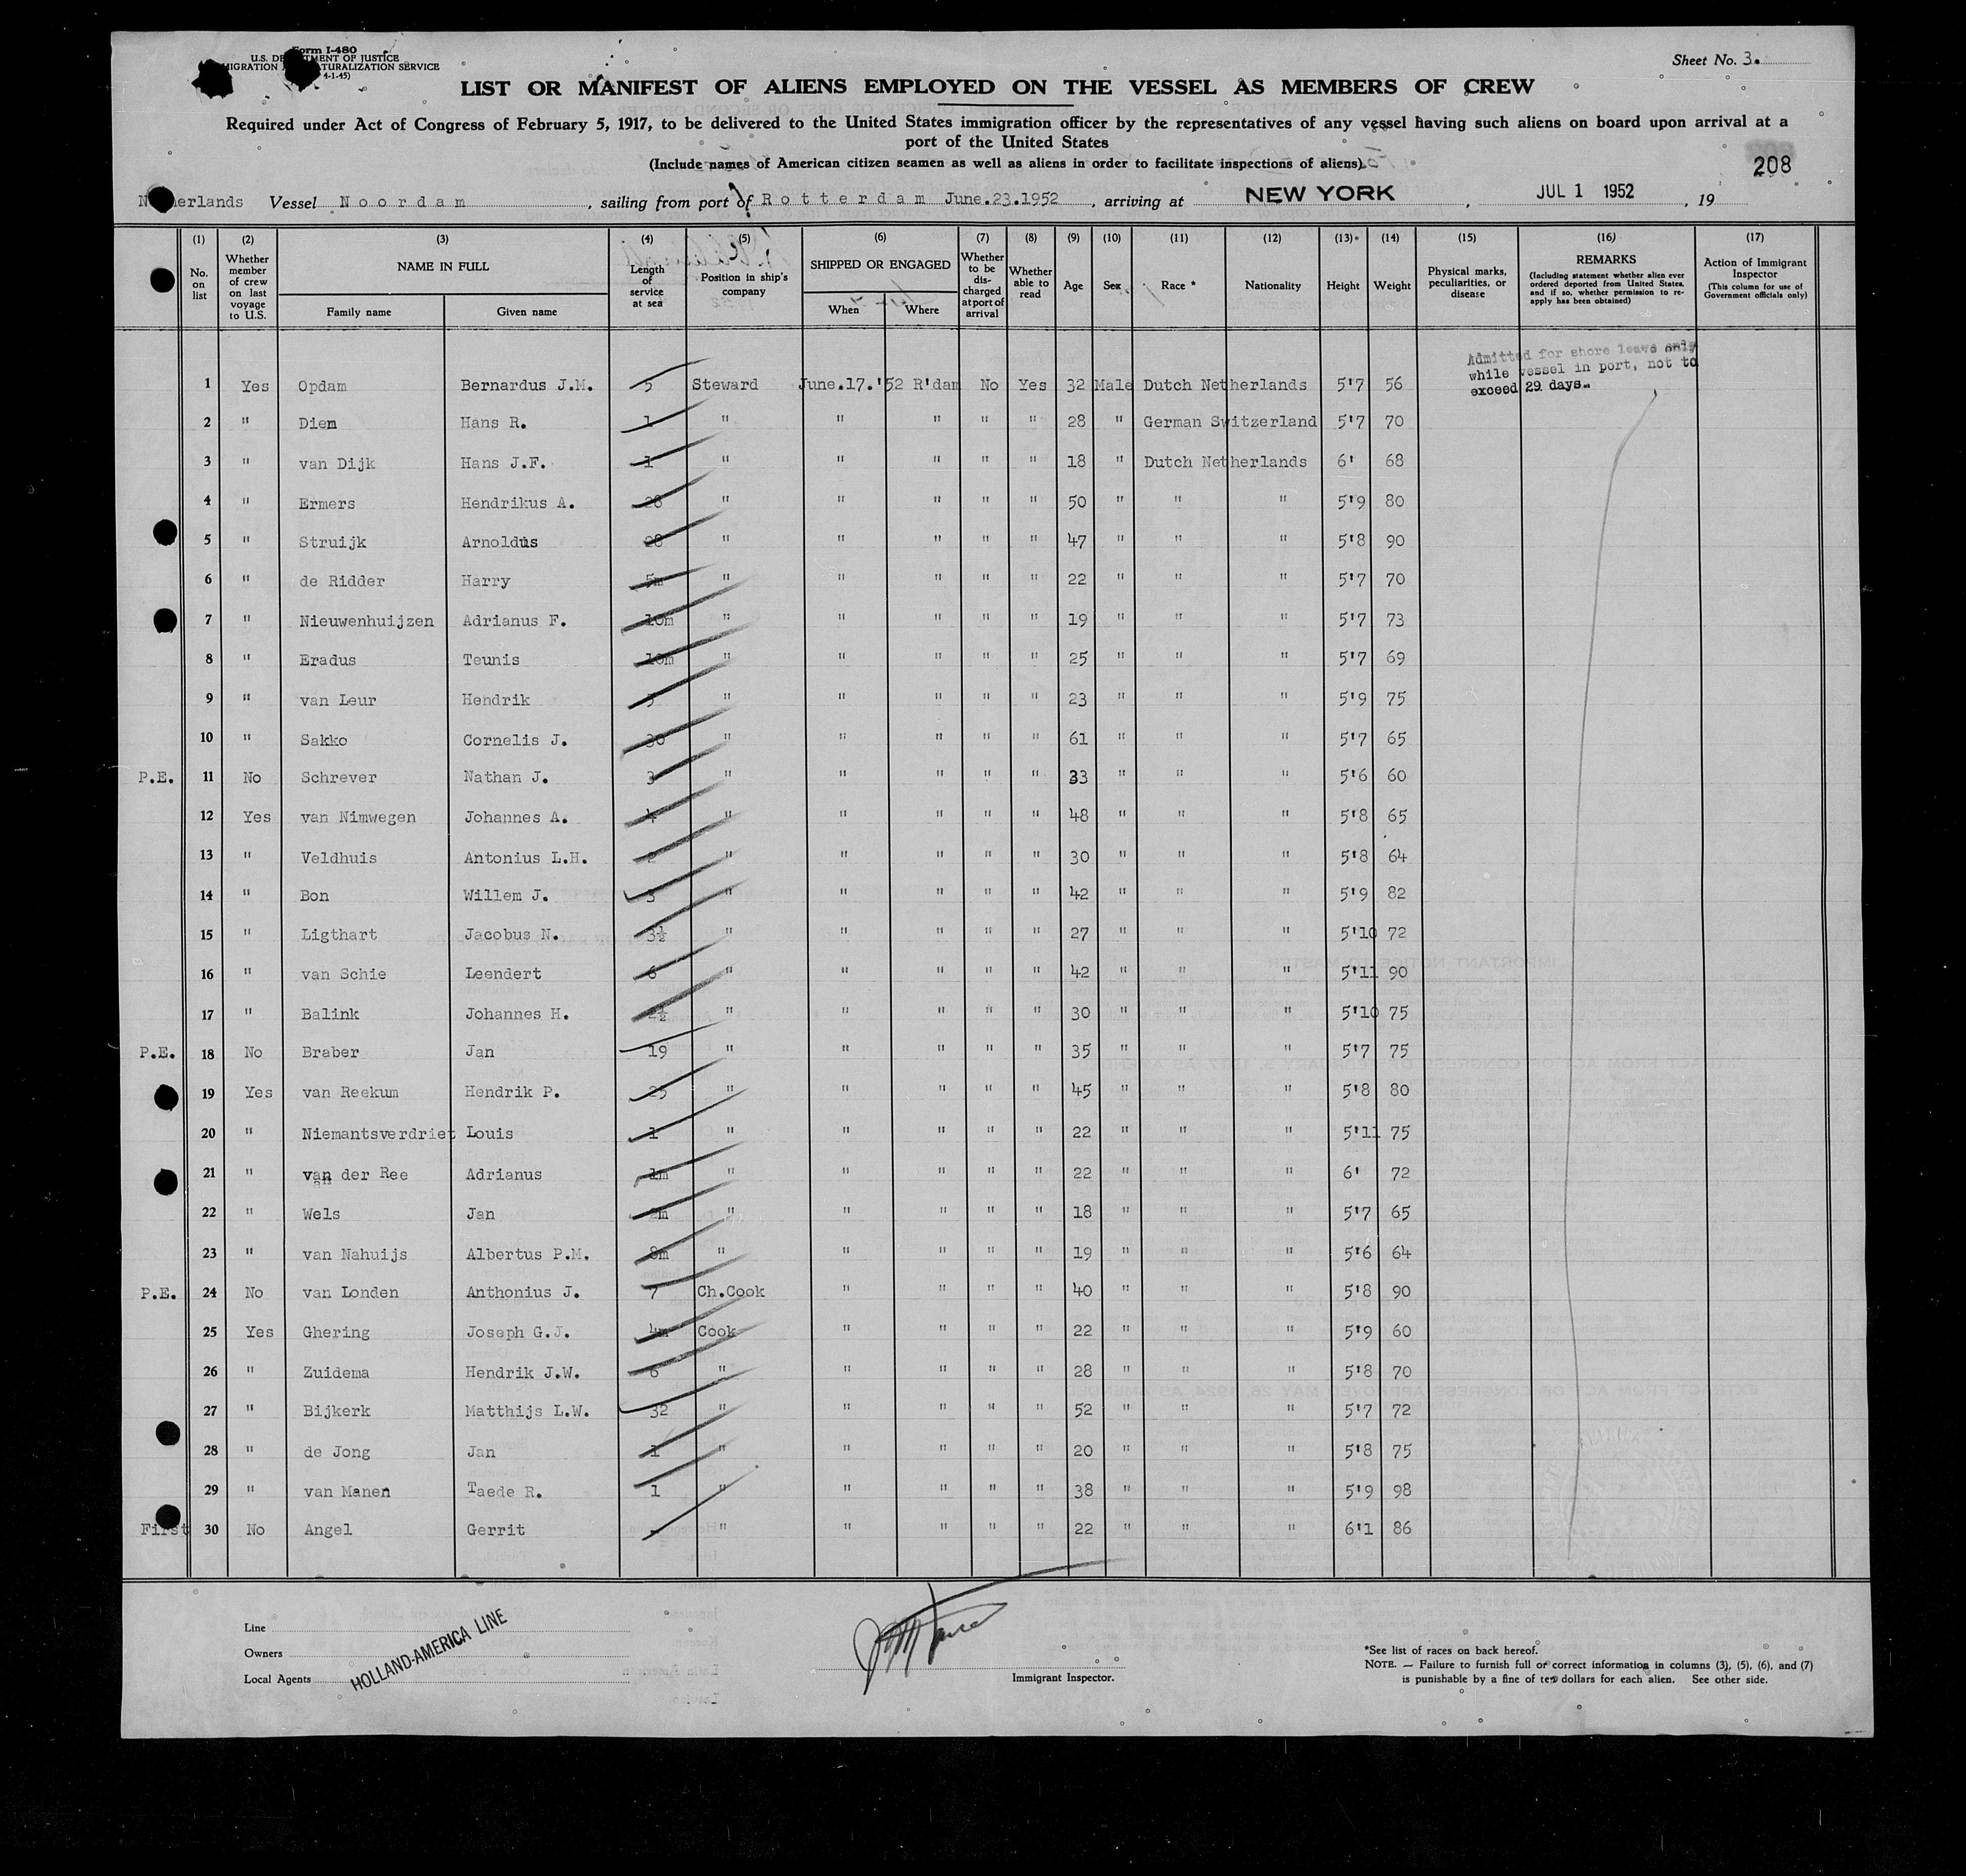 Form I-480
U.S. DE TMENT OF JUSTICE
MIGRATION TURALIZATION SERVICE
4-1-45)
Sheet No. 3.
LIST OR MANIFEST OF ALIENS EMPLOYED ON THE VESSEL AS MEMBERS OF CREW
Required under Act of Congress of February 5, 1917, to be delivered to the United States immigration officer by the representatives of any vessel having such aliens on board upon arrival at a
port of the United States
(Include names of American citizen seamen as well as aliens in order to facilitate inspections of aliens)
208
N erlands Vessel Noordam, sailing from port of Rotterdam June.23.1952, arriving at NEW YORK, JUL 1 1952, 19
(1) (2) (3) (4) (5) (6) (7) (8) (9) (10) (11) (12) (13) (14) (15) (16) (17)
No. on list
Whether member of crew on last voyage to U.S.
NAME IN FULL
Family name Given name
Length of service at sea
Position in ship's company
SHIPPED OR ENGAGED
When Where
Whether to be discharged at port of arrival
Whether able to read
Age Sex Race * Nationality Height Weight
Physical marks, peculiarities, or disease
REMARKS
(Including statement whether alien ever ordered deported from United States, and if so, whether permission to reapply has been obtained)
Action of Immigrant Inspector
(This column for use of Government officials only)
Admitted for shore leave only
while vessel in port, not to
exceed 29 days.
1 Yes Opdam Bernardus J.M. 5 Steward June.17.'52 R'dam No Yes 32 Male Dutch Netherlands 5'7 56
2 " Diem Hans R. 1 " " " " " 28 " German Switzerland 5'7 70
3 " van Dijk Hans J.F. 1 " " " " " 18 " Dutch Netherlands 6' 68
4 " Ermers Hendrikus A. 28 " " " " " 50 " " " 5'9 80
5 " Struijk Arnoldus 28 " " " " " 47 " " " 5'8 90
6 " de Ridder Harry 5m " " " " " 22 " " " 5'7 70
7 " Nieuwenhuijzen Adrianus F. 10m " " " " " 19 " " " 5'7 73
8 " Eradus Teunis 10m " " " " " 25 " " " 5'7 69
9 " van Leur Hendrik 5 " " " " " 23 " " " 5'9 75
10 " Sakko Cornelis J. 30 " " " " " 61 " " " 5'7 65
P.E. 11 No Schrever Nathan J. 3 " " " " " 33 " " " 5'6 60
12 Yes van Nimwegen Johannes A. 4 " " " " " 48 " " " 5'8 65
13 " Veldhuis Antonius L.H. 2 " " " " " 30 " " " 5'8 64
14 " Bon Willem J. 3 " " " " " 42 " " " 5'9 82
15 " Ligthart Jacobus N. 3½ " " " " " 27 " " " 5'10 72
16 " van Schie Leendert 6 " " " " " 42 " " " 5'11 90
17 " Balink Johannes H. 2½ " " " " " 30 " " " 5'10 75
P.E. 18 No Braber Jan 19 " " " " " 35 " " " 5'7 75
19 Yes van Reekum Hendrik P. 25 " " " " " 45 " " " 5'8 80
20 " Niemantsverdriet Louis 1 " " " " " 22 " " " 5'11 75
21 " van der Ree Adrianus 1m " " " " " 22 " " " 6' 72
22 " Wels Jan " " " " " 18 " " " 5'7 65
23 " van Nahuijs Albertus P.M. 8m " " " " " 19 " " " 5'6 64
P.E. 24 No van Londen Anthonius J. 7 Ch.Cook " " " " 40 " " " 5'8 90
25 Yes Ghering Joseph G.J. 4m Cook " " " " 22 " " " 5'9 60
26 " Zuidema Hendrik J.W. 6 " " " " " 28 " " " 5'8 70
27 " Bijkerk Matthijs L.W. 32 " " " " " 52 " " " 5'7 72
28 " de Jong Jan 1 " " " " " 20 " " " 5'8 75
29 " van Manen Taede R. 1 " " " " " 38 " " " 5'9 98
First 30 No Angel Gerrit - " " " " " 22 " " " 6'1 86
Line
Owners
Local Agents
HOLLAND-AMERICA LINE
Immigrant Inspector.
*See list of races on back hereof.
NOTE. — Failure to furnish full or correct information in columns (3), (5), (6), and (7)
is punishable by a fine of ten dollars for each alien. See other side.